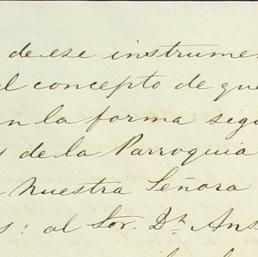 de ese instrume
el concepto de que
en la forma sigu
s de la Parroquia
Nuestra Señora
s: al Sor. Dn. Ans